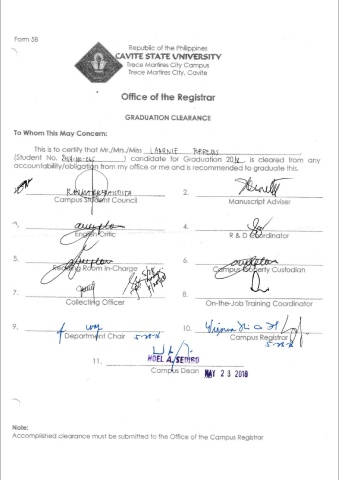 Form 5B
Republic of the Philippines
CAVITE STATE UNIVERSITY
Trece Martires City Campus
Trece Martires City, Cavite
Office of the Registrar
GRADUATION CLEARANCE
To Whom This May Concern:
This is to certify that Mr./Mrs./Miss LAARNIE
(Student No. ) candidate for Graduation 20 , is cleared from any
accountability/obligation from my office or me and is recommended to graduate this.
1. 2.
Campus Student Council Manuscript Adviser
3. 4.
English Critic R & D Coordinator
5. 6.
Reading Room In-Charge Campus Property Custodian
7. 8.
Collecting Officer On-the-Job Training Coordinator
9. 10.
Department Chair Campus Registrar
11. NOEL A. SEDIGO
Campus Dean MAY 28 2018
Note:
Accomplished clearance must be submitted to the Office of the Campus Registrar